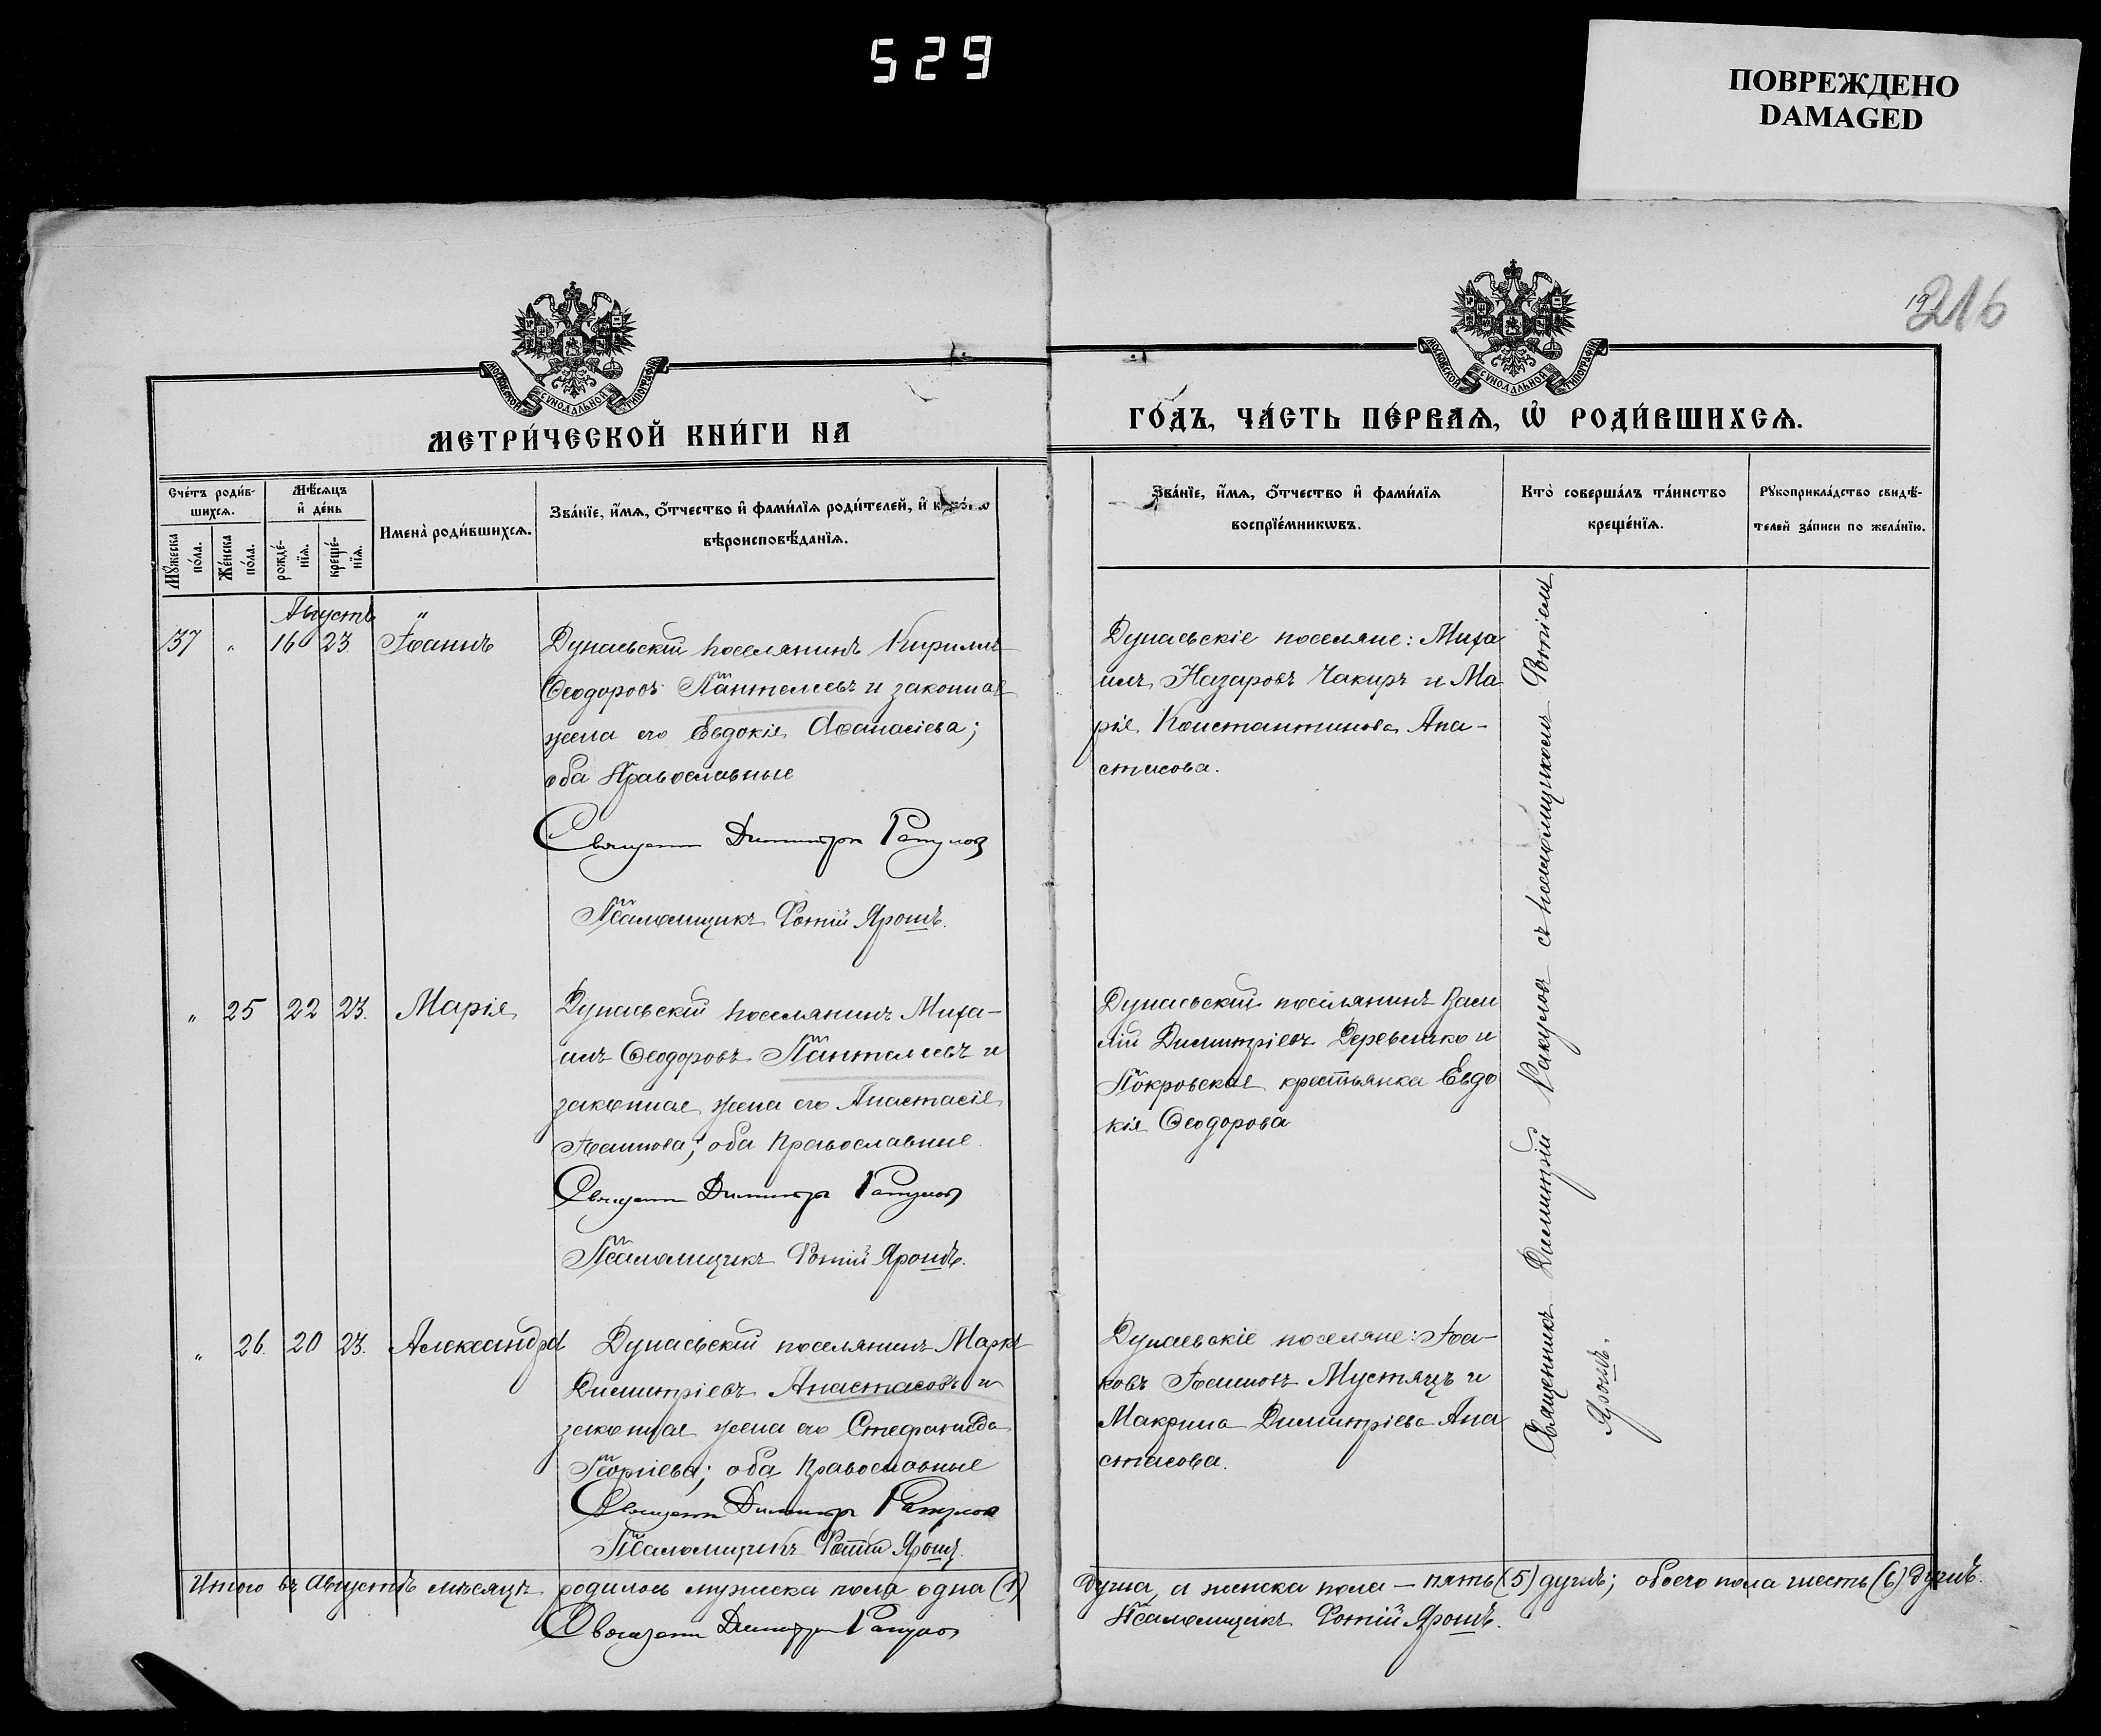 529
ПОВРЕЖДЕНО
DAMAGED
19
216
МОСКОВСКОЙ СѴНОДАЛЬНОЙ ТИПОГРАФІИ
МОСКОВСКОЙ СѴНОДАЛЬНОЙ ТИПОГРАФІИ
МЕТРИ́ЧЕСКОЙ КНИ́ГИ НА
ГО́ДЪ, ЧА́СТЬ ПЕ́РВАѦ, Ѡ҆ РОДИ́ВШИХСѦ.
Сче́тъ роди́в-
шихсѧ.
Мѣ́сѧцъ
и҆ де́нь
Мꙋ́жеска
по́ла.
Же́нска
по́ла.
рожде́-
нїѧ.
креще́-
нїѧ.
Имена̀ роди́вшихсѧ.
Зва́нїе, и҆́мѧ, о҆́тчество и҆ фами́лїѧ роди́телей, и҆
вѣроисповѣ́данїѧ.
Зва́нїе, и҆́мѧ, о҆́тчество и҆ фами́лїѧ
воспрїе́мникѡвъ.
Кто̀ соверша́лъ та́инство
креще́нїѧ.
Рꙋкоприкла́дство свидѣ́-
телей за́писи по жела́нїю.
Августъ "
37 " 16 23 Іоаннъ
Дунаевскій поселянинъ Кириллъ
Ѳеодоровъ Пантелеевъ и законная
жена его Евдокія Аѳанасіева;
оба Православные
Священн Димитрій Ракулов
Псаломщикъ Фотій Ярошъ.
Дунаевскіе поселяне: Миха
илъ Назаровъ Чакиръ и Ма
рія Константинова Ана-
стасова.
" 25 22 23. Марія
Дунаевскій поселянинъ Миха-
илъ Ѳеодоровъ Пантелеевъ и
законная жена его Анастасія
Іоаннова; оба Православные.
Священн Димитрій Ракулов
Псаломщикъ Фотій Ярошъ.
Дунаевскій поселянинъ Васи
лій Димитріевъ Деревенко и
Покровская крестьянка Евдо
кія Ѳеодорова
" 26. 20 23. Александра
Дунаевскій поселянинъ Маркъ
Димитріевъ Анастасовъ и
законная жена его Стефанида
Георгіева; оба Православные
Священн Димитрій Ракулов
Псаломщикъ Фотій Ярошъ.
Дунаевскіе поселяне: Іа-
ковъ Іоанновъ Мустяцъ и
Макрина Димитріева Ана
стасова.
Священникъ Димитрій Ракулов съ псаломщикомъ Фотіемъ
Ярошъ.
Итого въ Августѣ мѣсяцѣ родилось мужеска пола одна (1) душа, а женска пола — пять (5) душъ; обоего пола шесть (6) душъ.
Священн Димитрій Ракулов
Псаломщикъ Фотій Ярошъ.